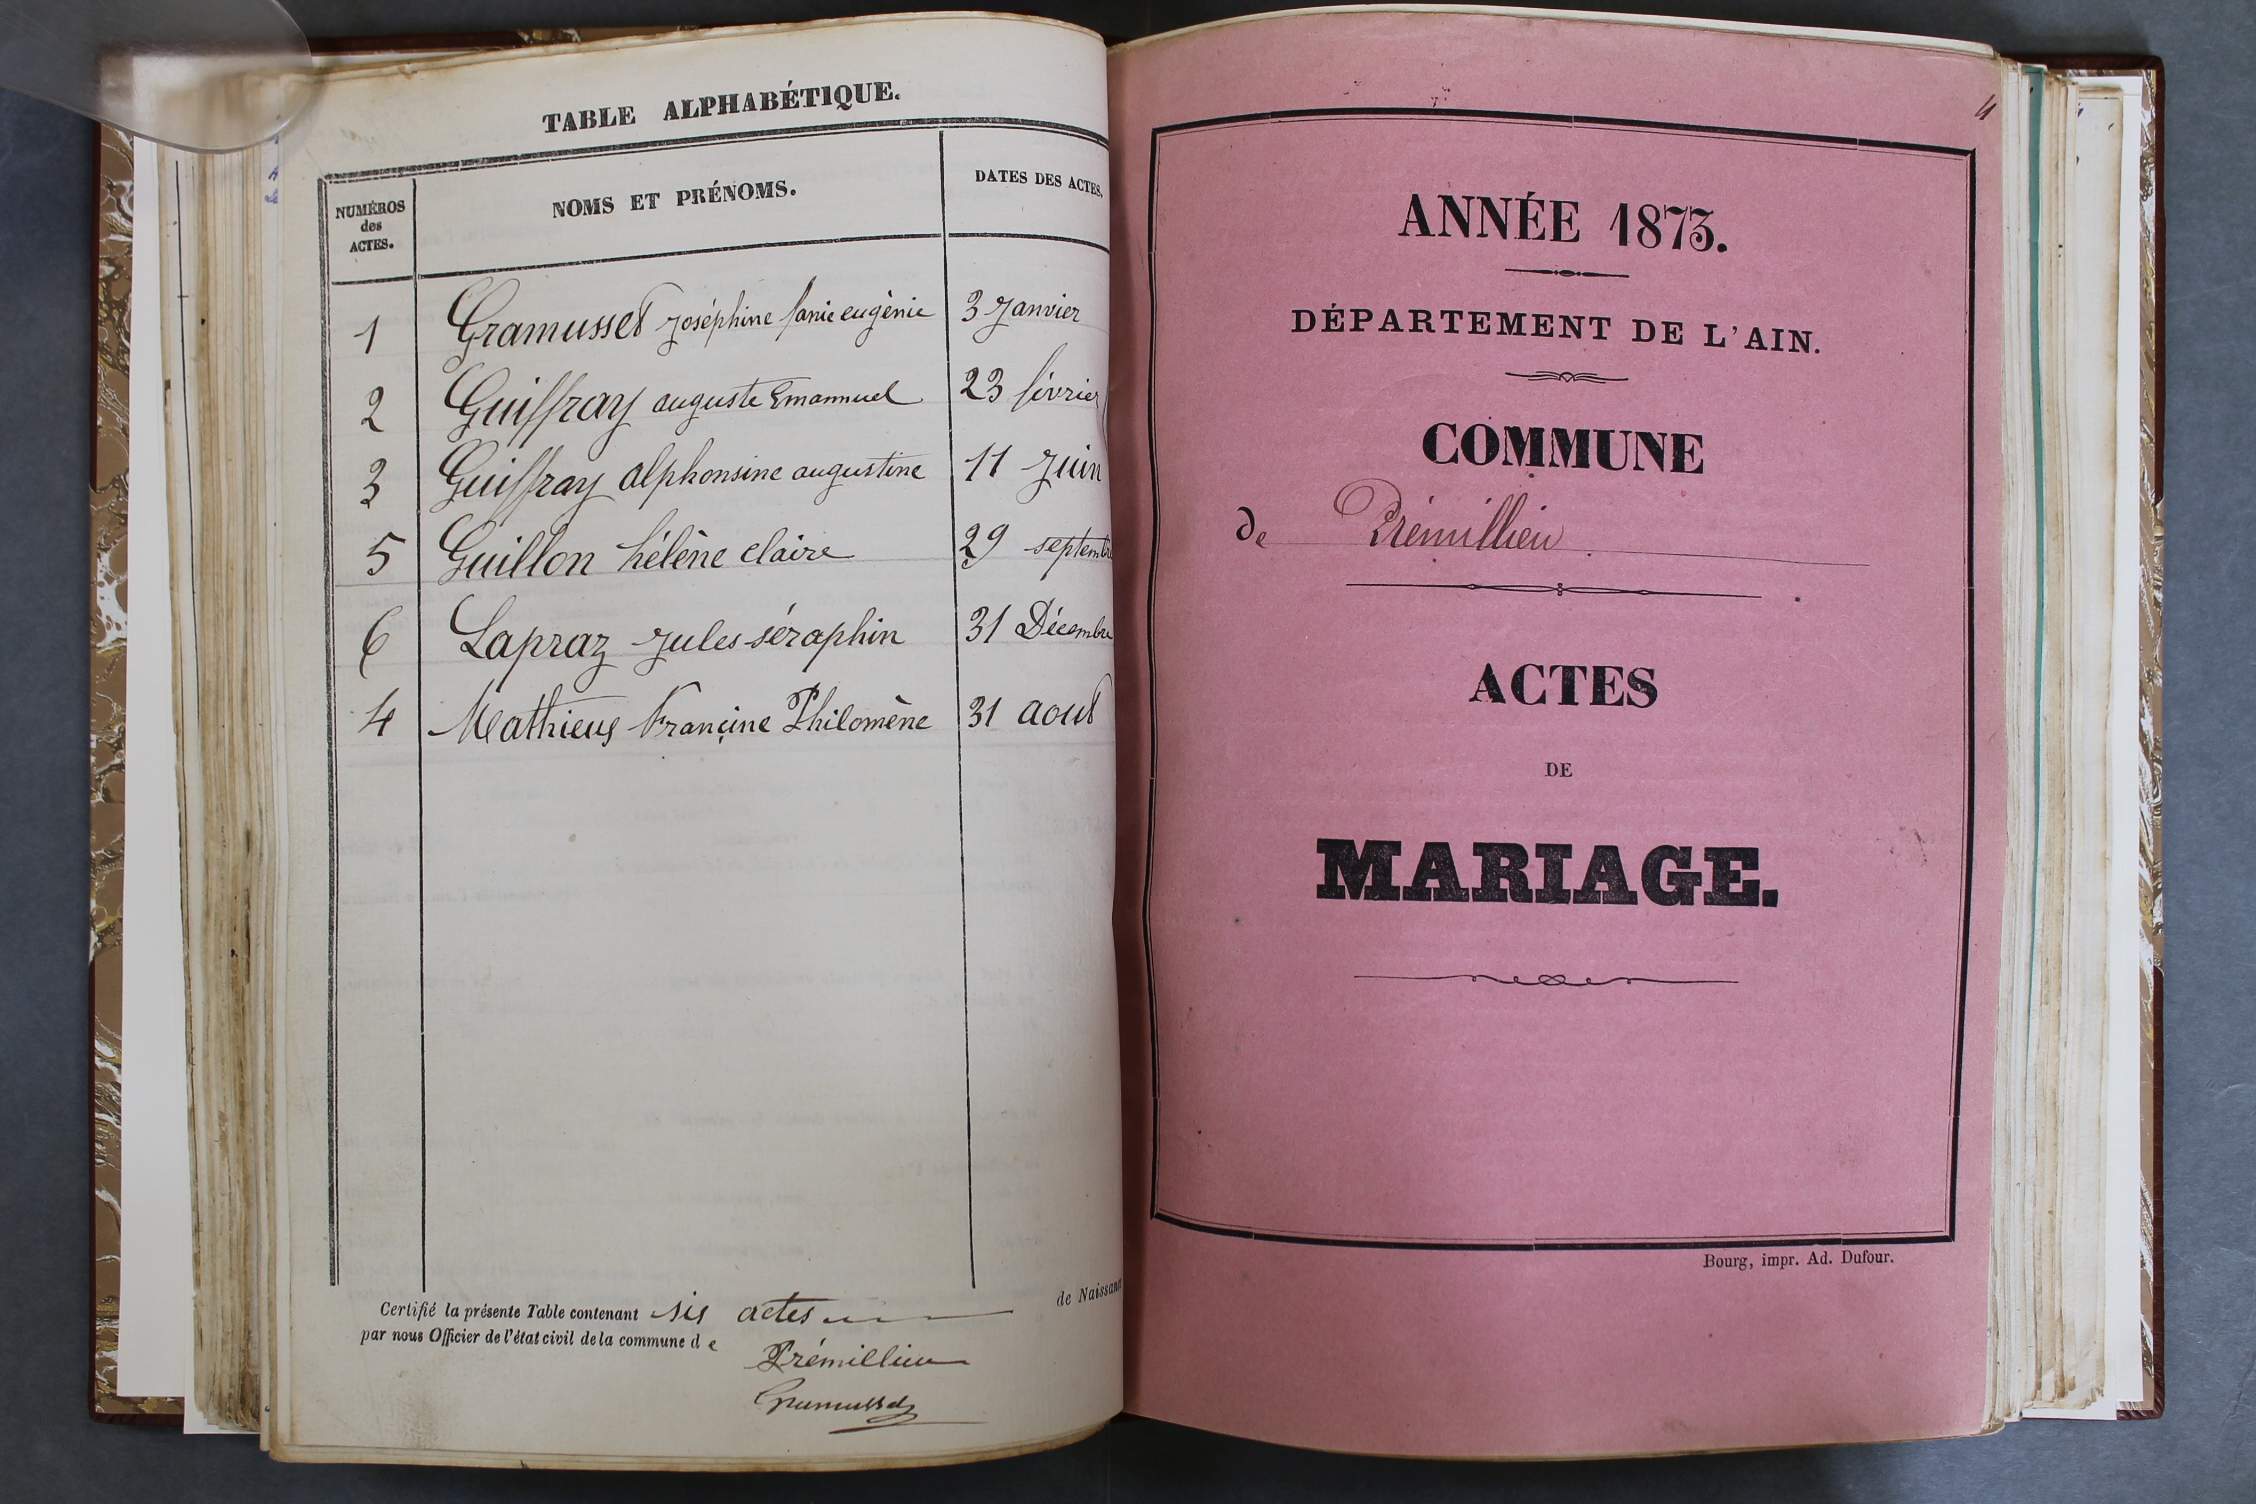 TABLE ALPHABÉTIQUE.
NUMÉROS
des
ACTES.
NOMS ET PRÉNOMS.
DATES DES ACTES.
1 Gramusset Joséphine fanie eugènie 3 Janvier
2 Guiffray auguste Emannuel 23 février
3 Guiffray alphonsine augustine 11 Juin
5 Guillon hélène claire 29 septembre
6 Lapraz Jules séraphin 31 Décembre
4 Mathieux Françine Philomène 31 aout
Certifié la présente Table contenant six actes de Naissance
par nous Officier de l'état civil de la commune de
Prémillieu
Gramusset
4
ANNÉE 1873.
DÉPARTEMENT DE L'AIN.
COMMUNE
de Prémillieu.
ACTES
DE
MARIAGE.
Bourg, impr. Ad. Dufour.